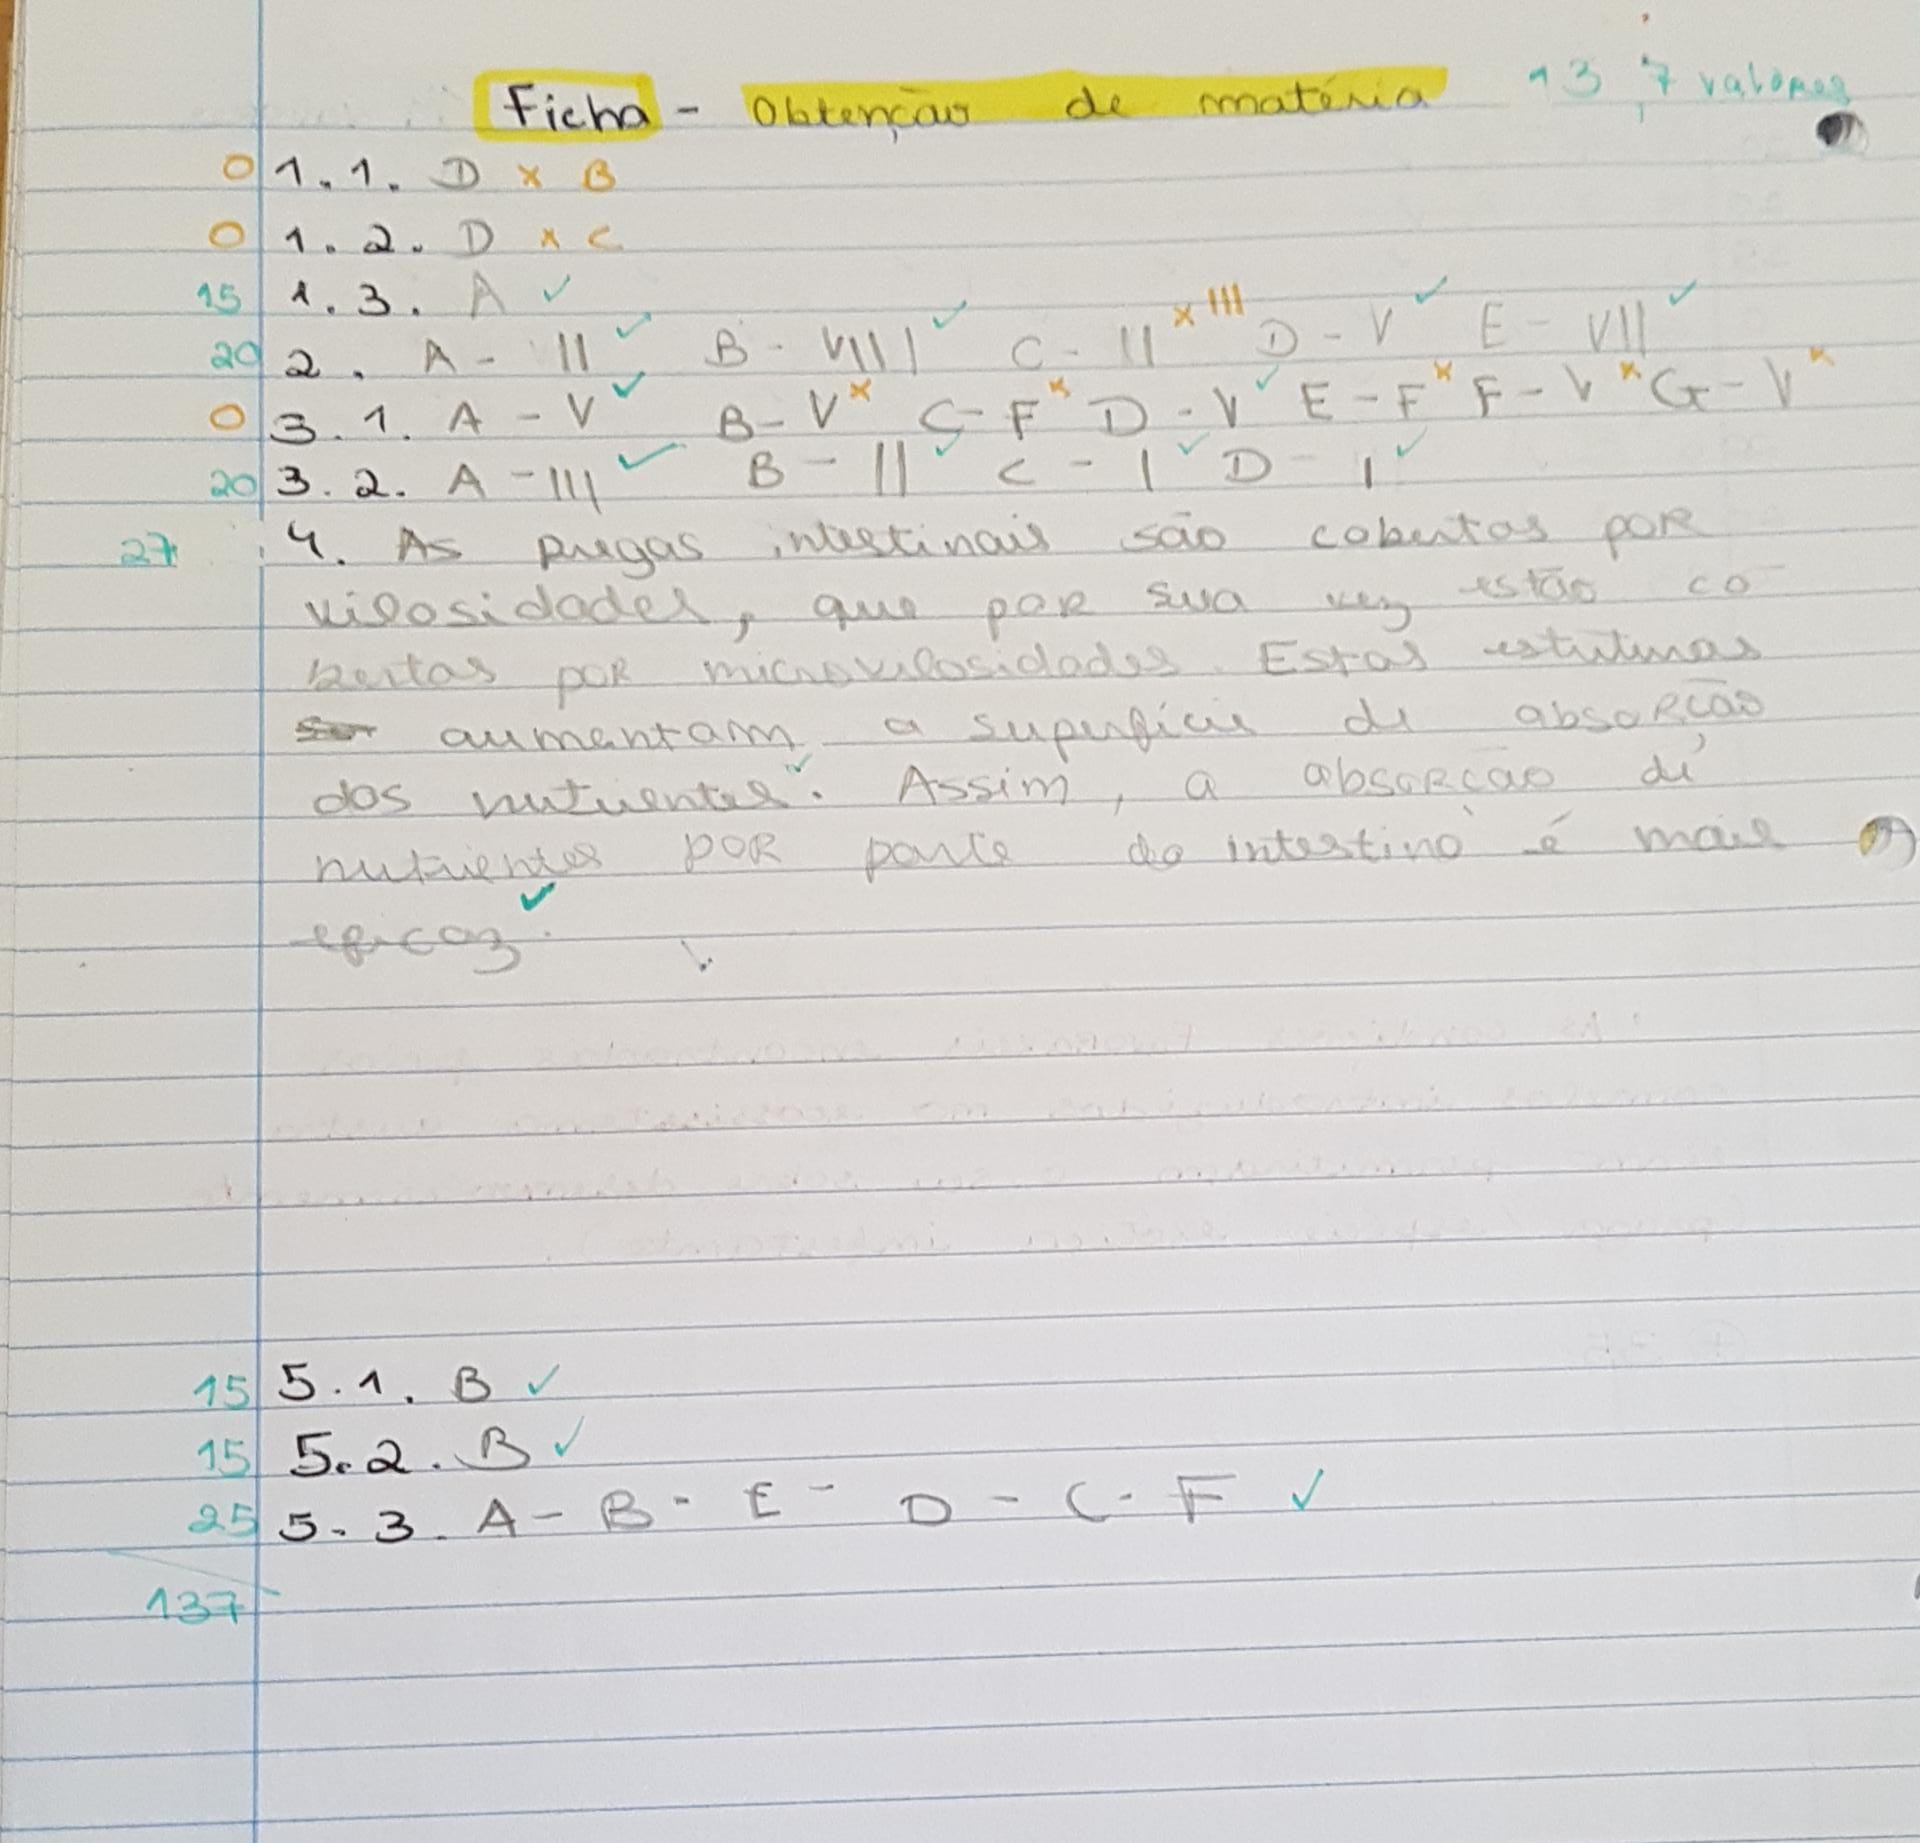 Ficha - Obtenção de matéria 13,7 valores
0 1.1. D x B
0 1.2. D x C
15 1.3. A ✓
20 2. A - II ✓ B - VIII ✓ C - II x III D - V ✓ E - VII ✓
0 3.1. A - V ✓ B - V x C - F x D - V ✓ E - F x F - V x G - V x
20 3.2. A - III ✓ B - II ✓ C - I ✓ D - I ✓
27 4. As pregas intestinais são cobertas por
vilosidades, que por sua vez estão co
bertas por microvilosidades. Estas estruturas
aumentam a superfície de absorção
dos nutrientes ✓. Assim, a absorção de
nutrientes por parte do intestino é mais
eficaz ✓.
15 5.1. B ✓
15 5.2. B ✓
25 5.3. A - B - E - D - C - F ✓
137